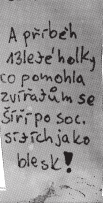 A příběh
13leté holky
co pomohla
zvířatům se
šíří po soc.
sítích jako
blesk!